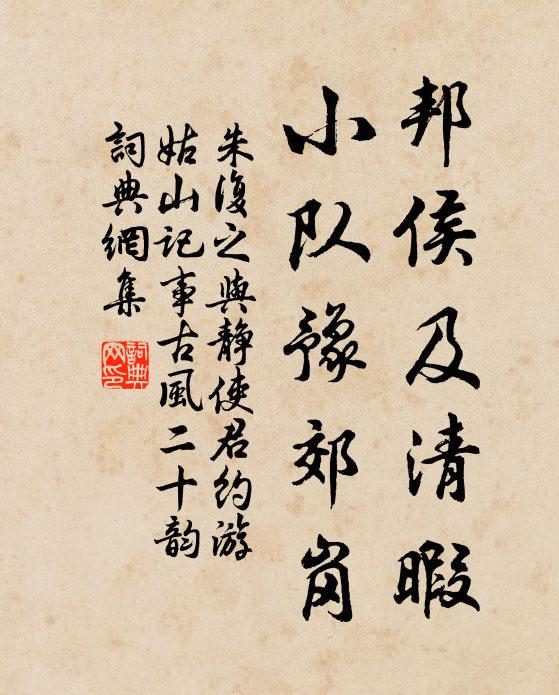 邦侯及清暇
小队豫郊岗
朱復之與静使君约游
姑山记事古風二十韵
詞典網集
詞典網印